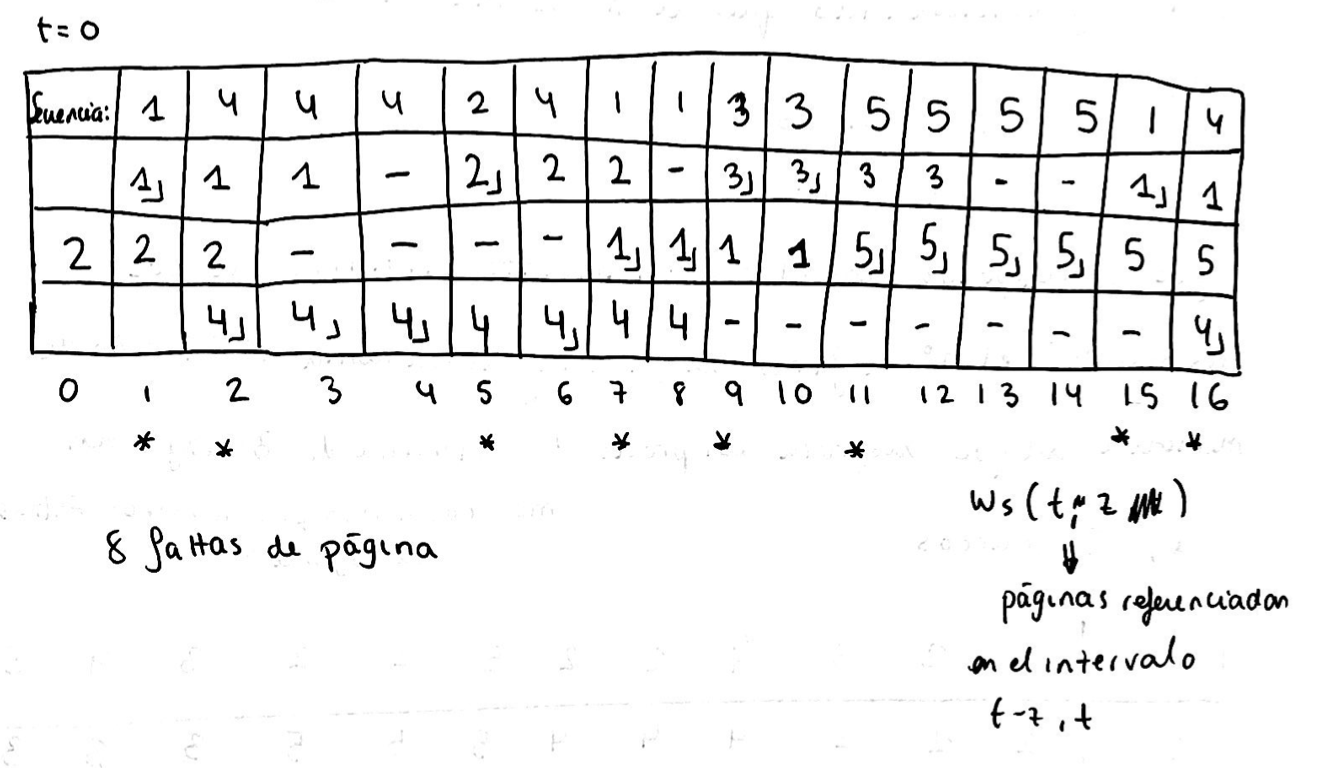 t=0
Secuencia: 1 4 4 4 2 4 1 1 3 3 5 5 5 5 1 4
1, 1 1 - 2, 2 2 - 3, 3, 3 3 - - 1, 1
2 2 2 - - - - 1, 1, 1 1 5, 5, 5, 5, 5 5
4, 4, 4, 4 4, 4 4 - - - - - - - 4,
0 1 2 3 4 5 6 7 8 9 10 11 12 13 14 15 16
* * * * * * * *
8 faltas de página
Ws (t, z)
páginas referenciadas
en el intervalo
t-z, t